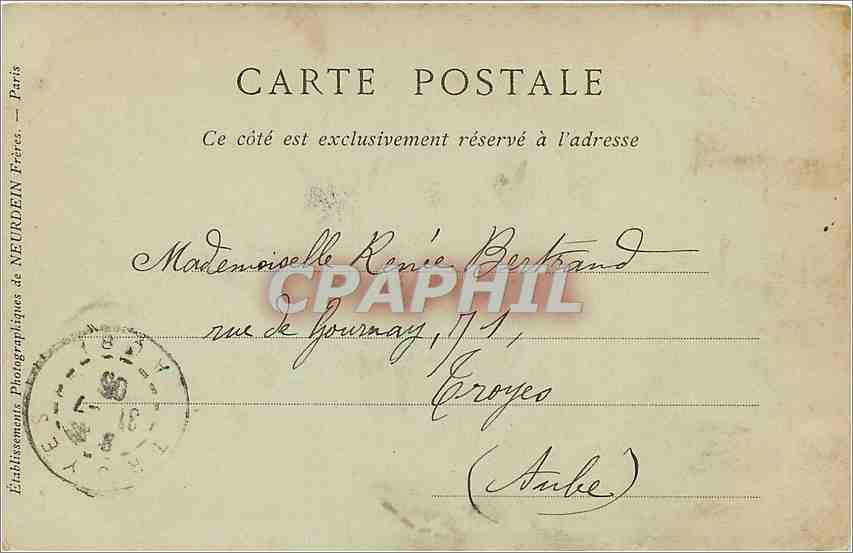 CARTE POSTALE
Ce côté est exclusivement réservé à l'adresse
Mademoiselle Renée Bertrand
CPAPHIL
rue de Gournay, 71,
Troyes
(Aube)
Établissements Photographiques de NEURDEIN Frères. — Paris
TROYES
31
AUBE